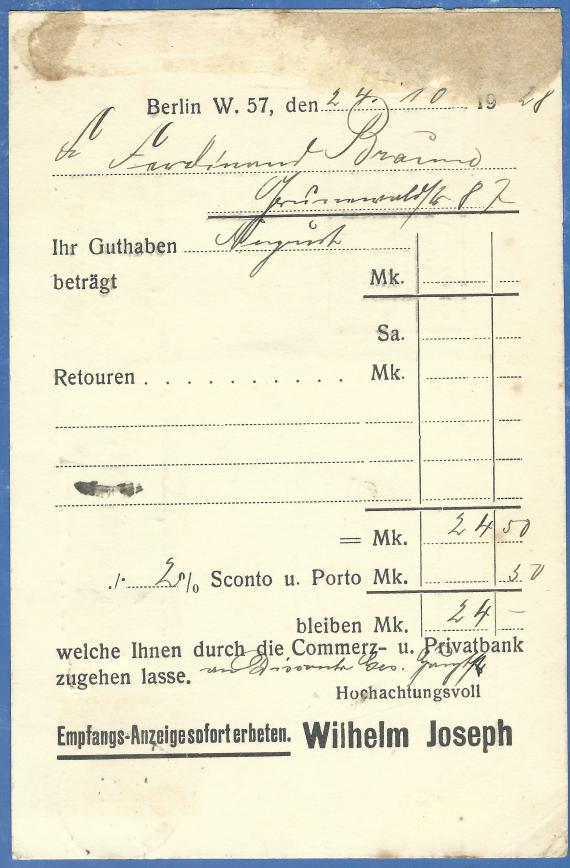 Berlin W. 57, den 24. 10 1928
Fa Ferdinand Bräuno
Grunewaldstr 87
Ihr Guthaben August
beträgt Mk.
Sa.
Retouren . . . . . . . . . . Mk.
= Mk. 24 50
./. 2% Sconto u. Porto Mk. 50
bleiben Mk. 24 –
welche Ihnen durch die Commerz- u. Privatbank
zugehen lasse. an Ges.
Hochachtungsvoll
Empfangs-Anzeige sofort erbeten. Wilhelm Joseph